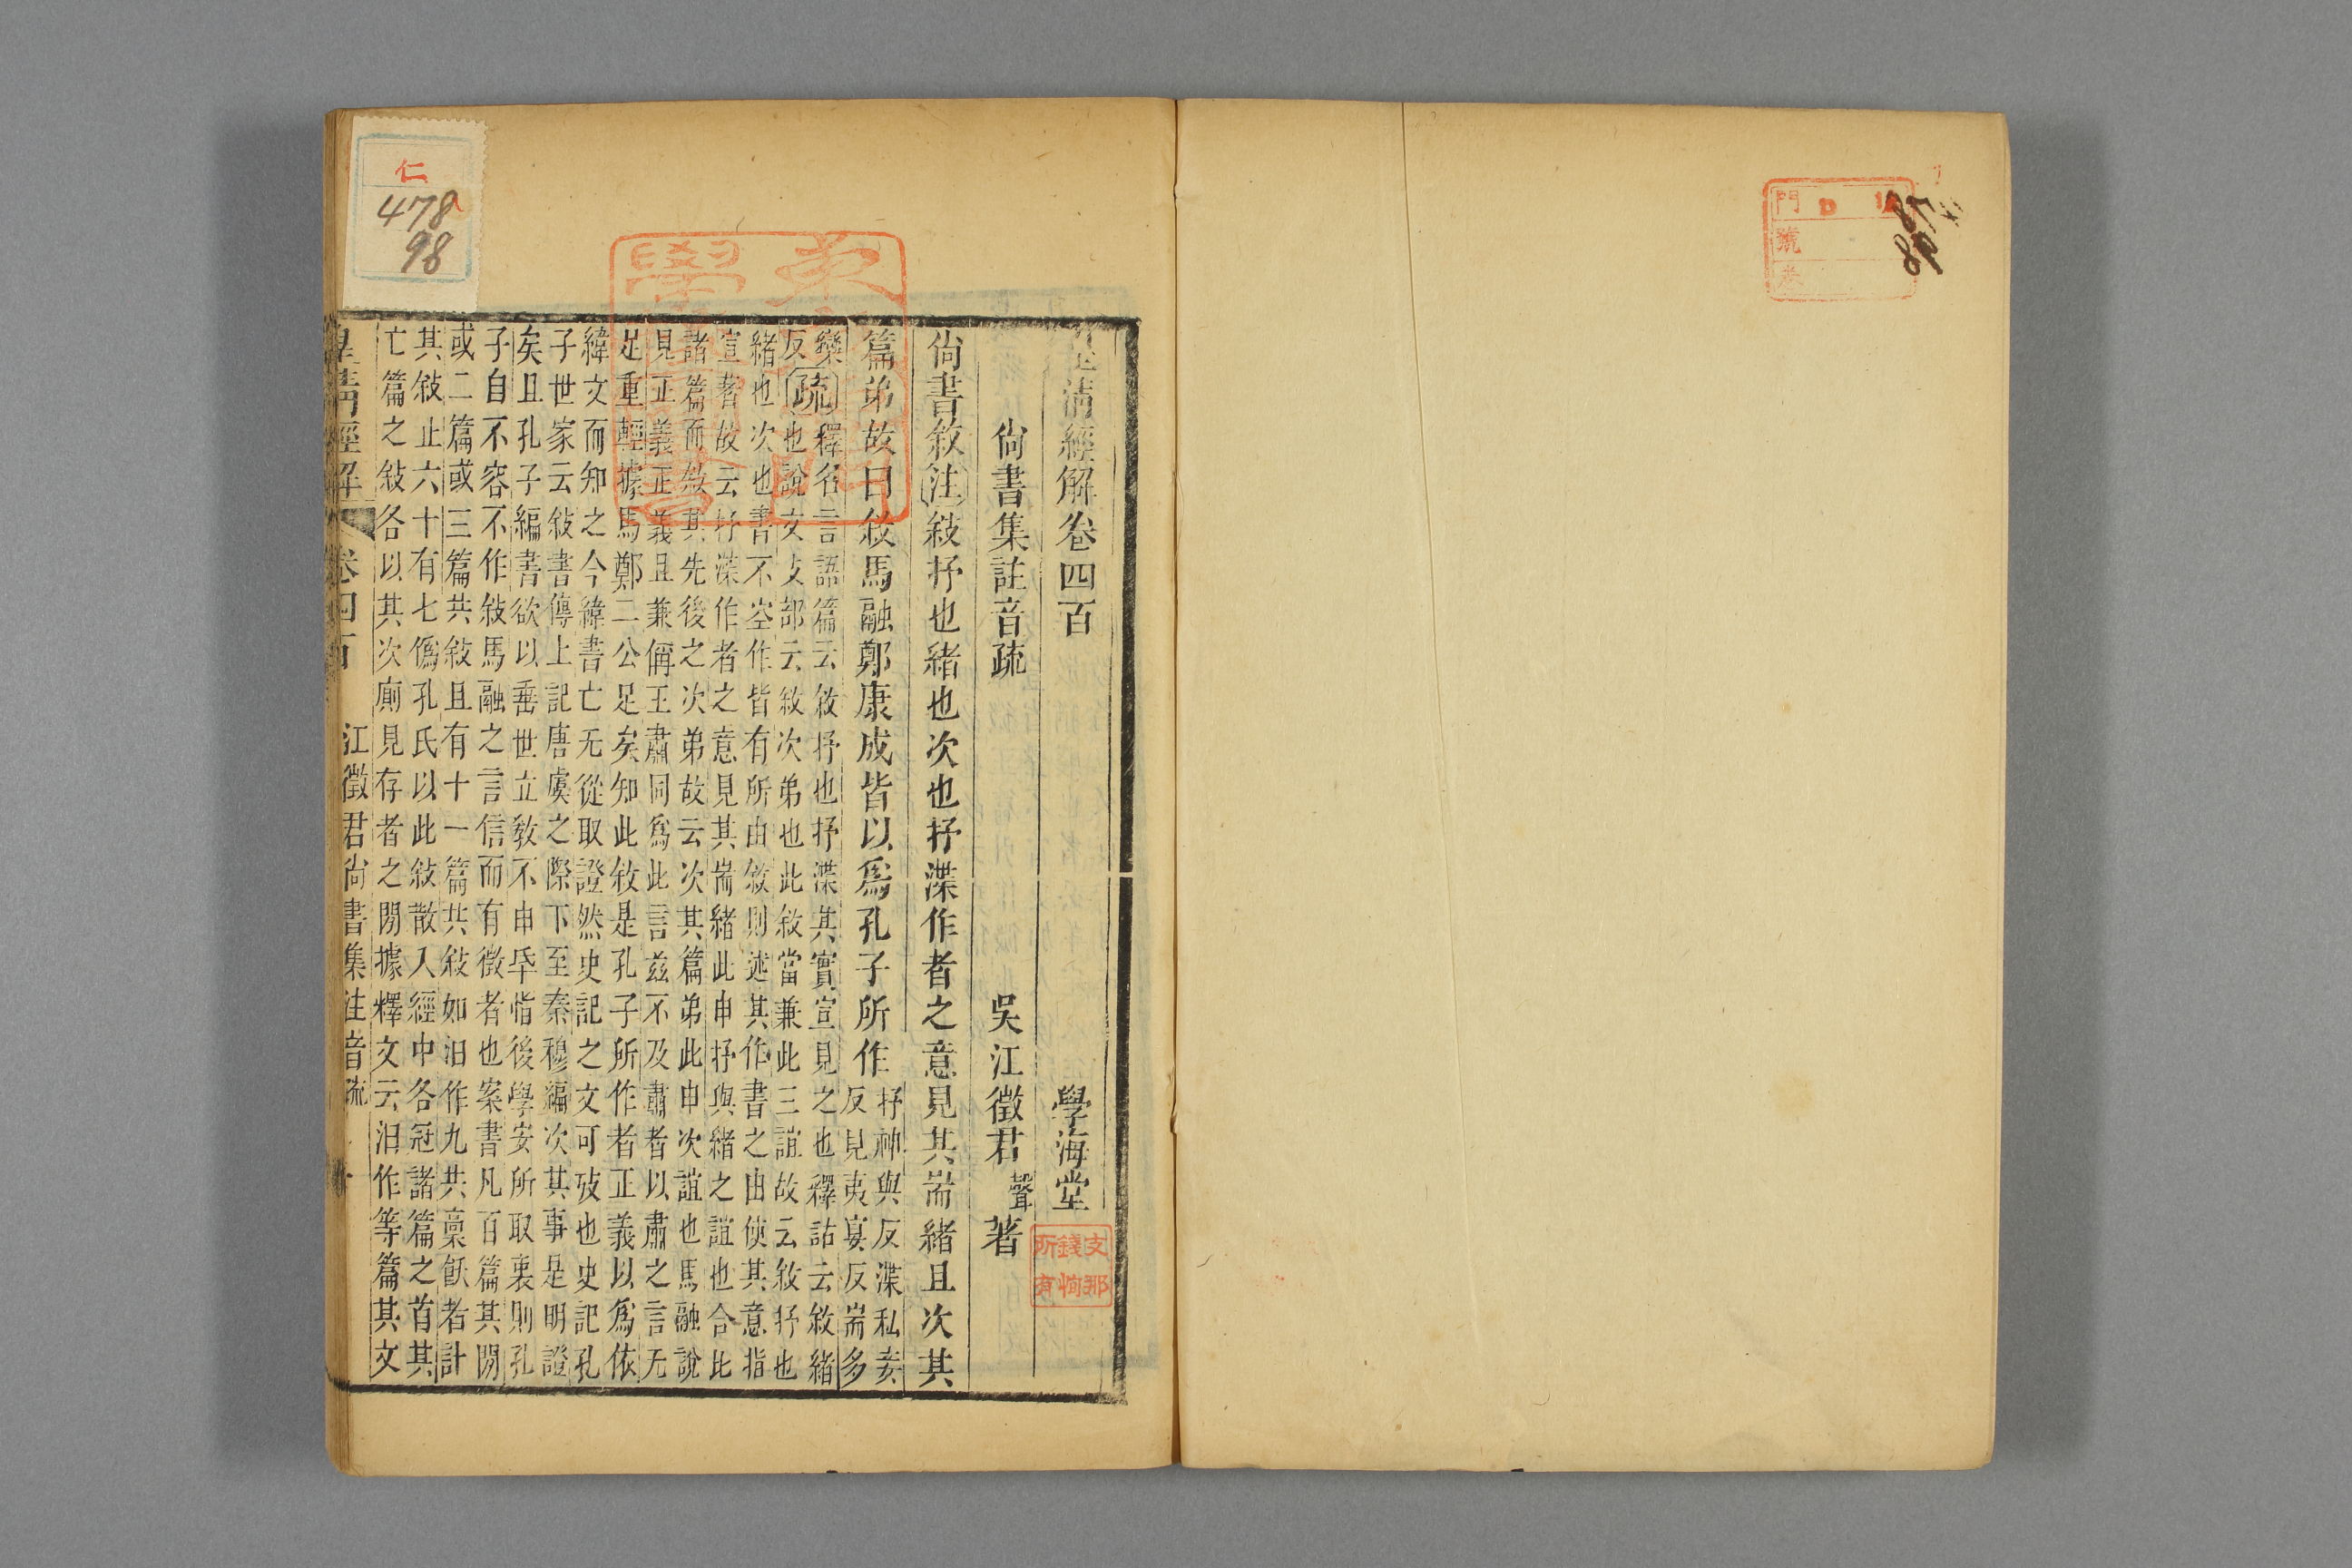 門 D
號
卷
皇清經解卷四百 學海堂
尚書集註音疏 吳江徵君聲著
尚書敘注敘抒也緒也次也抒渫作者之意見其耑緒且次其
篇弟故曰敘馬融鄭康成皆以爲孔子所作
抒神與反渫私妾
反見夷宴反耑多
欒
疏釋名言語篇云敘抒也抒渫其實宣見之也釋詁云敘緒
反
也說文攴部云敘次弟也此敘當兼此三誼故云敘抒也
緒也次也書不空作皆有所由敘則述其作書之由使其意指
宣著故云抒渫作者之意見其耑緒此申抒與緒之誼也合比
諸篇而敘其先後之次弟故云次其篇弟此申次誼也馬融說
見正義正義且兼偁王肅同爲此言茲不及肅者以肅之言无
足重輕據馬鄭二公足矣知此敘是孔子所作者正義以爲依
緯文而知之今緯書亡无從取證然史記之文可攷也史記孔
子世家云敘書傳上記唐虞之際下至秦穆編次其事是明證
矣且孔子編書欲以垂世立敎不申恉後學安所取裏則孔
子自不容不作敘馬融之言信而有徵者也案書凡百篇其閒
或二篇或三篇共敘且有十一篇共敘如汩作九共稾飫者計
其敘止六十有七僞孔氏以此敘散入經中各冠諸篇之首其
亡篇之敘各以其次廁見存者之閒據釋文云汩作等篇其文
皇清經解 卷四百 江徵君尚書集注音疏 一
支那
錢恂
所有
仁
478
98